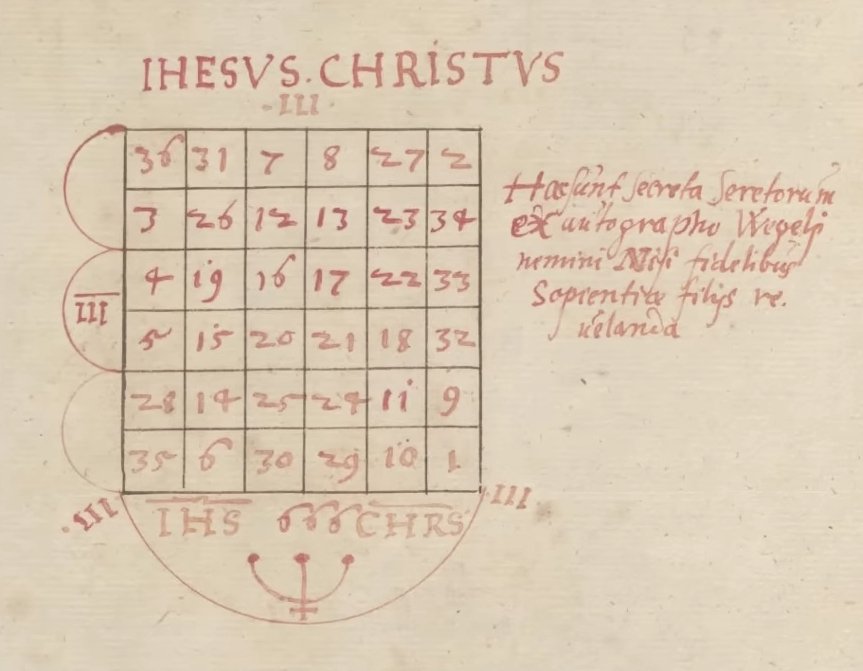 IHESVS. CHRISTVS
·III·
36 31 7 8 27 2
3 26 12 13 23 34
4 19 16 17 22 33
III
5 15 20 21 18 32
28 14 25 24 11 9
35 6 30 29 10 1
Hæc sunt secreta Seretorum
ex autographo Wegelij
nemini Nisi fidelibus
Sapientiæ filijs re.
uelanda
·III· IHS 666 CHRS ·III